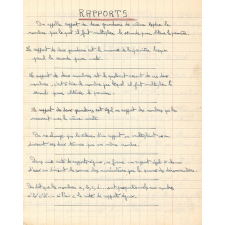 RAPPORTS
On appelle rapport de deux grandeurs de même espèce le
nombre par lequel il faut multiplier la seconde pour obtenir la première.
Le rapport de deux grandeurs est la mesure de la première lorsqu'on
prend la seconde pour unité.
Le rapport de deux nombres est le quotient exact de ces deux
nombres, c'est-à-dire le nombre par lequel il faut multiplier le
second pour obtenir le premier.
Le rapport de deux grandeurs est égal au rapport des nombres qui les
mesurent avec la même unité.
On ne change pas la valeur d'un rapport en multipliant ou en
divisant ses deux termes par un même nombre.
Dans une suite de rapports égaux, on forme un rapport égal
en divisant la somme des numérateurs par la somme des dénominateurs
On dit que les nombres a, b, c, d... sont proportionnels aux nombres
a', b', c'... si l'on a la suite de rapports égaux.